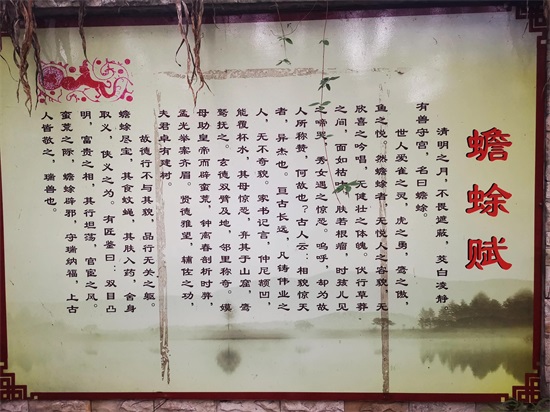 蟾蜍赋
清明之月，不畏遮蔽，芙白凌静
有兽守宫，名曰蟾蜍。
世人爱雀之灵，虎之勇，鹰之傲，
鱼之悦。然蟾蜍者，无悦人之容貌，无
欣喜之吟唱，无健壮之体魄。伏行草莽
之间，面如枯 肤若根瘤，时孩儿见
啼哭，秀女遇之惊恐。呜呼，却为故
人所称赞，何故也？古人云：相貌惊天
者，异杰也。亘古长远，凡铸伟业之
人，无不奇貌。家书记言，仲尼颡凹，
能覆杯水，其母惊恐，弃其于山窟，鹰
鹫抚之。玄德双臂及地，邻里称奇。嫫
母助皇帝而辟蛮荒，钟离春剖析时弊，
孟光举案齐眉。贤德雅望，辅佐之功，
夫君卓有建树。
故德行不与其貌，品行无关之躯。
蟾蜍尽宝，其食蚊蝇，其肤入药，舍身
取义，侠义之为。有匠鉴曰：双目凸
明，富贵之相，其行坦荡，官宦之风。
蛮荒之际，蟾蜍辟邪，守瑞纳福，上古
人皆敬之，瑞兽也。